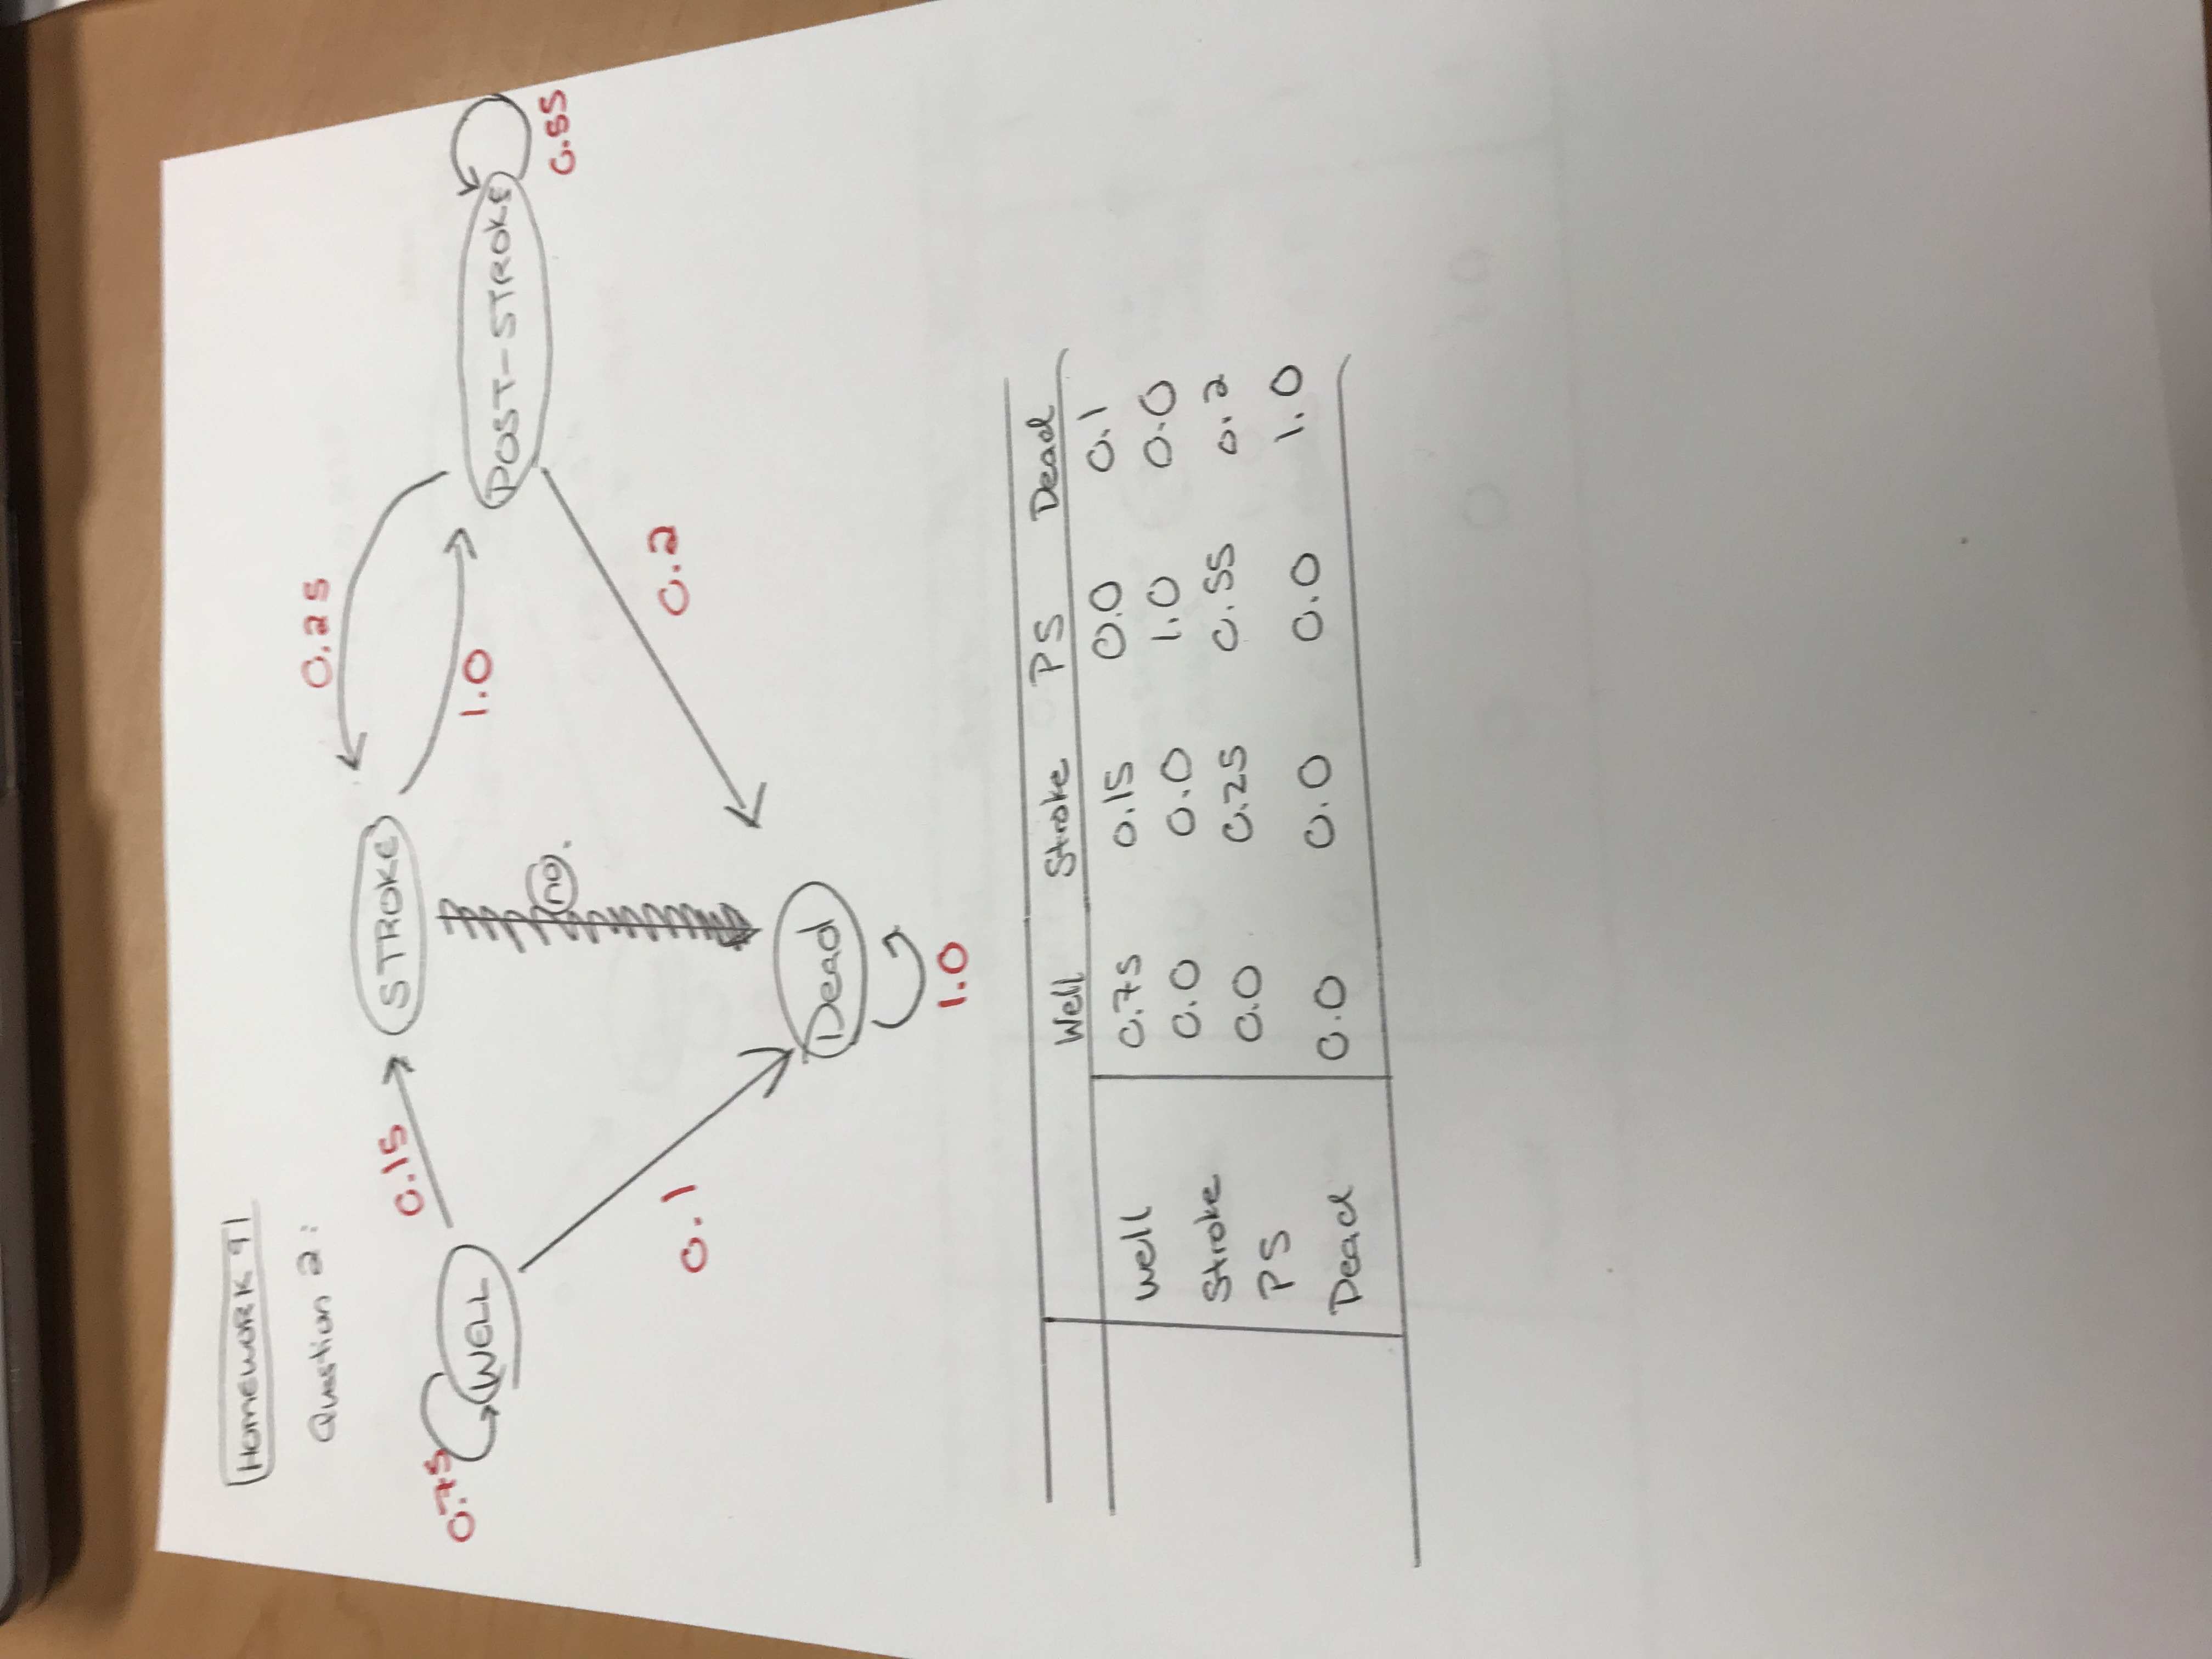 HOMEWORK 9
Question 2:
0.25
0.15
STROKE
0.75
WELL
1.0
POST-STROKE
no.
0.55
0.1
0.2
Dead
1.0
Well Stroke PS Dead
Well 0.75 0.15 0.0 0.1
Stroke 0.0 0.0 1.0 0.0
PS 0.0 0.25 0.55 0.2
Dead 0.0 0.0 0.0 1.0